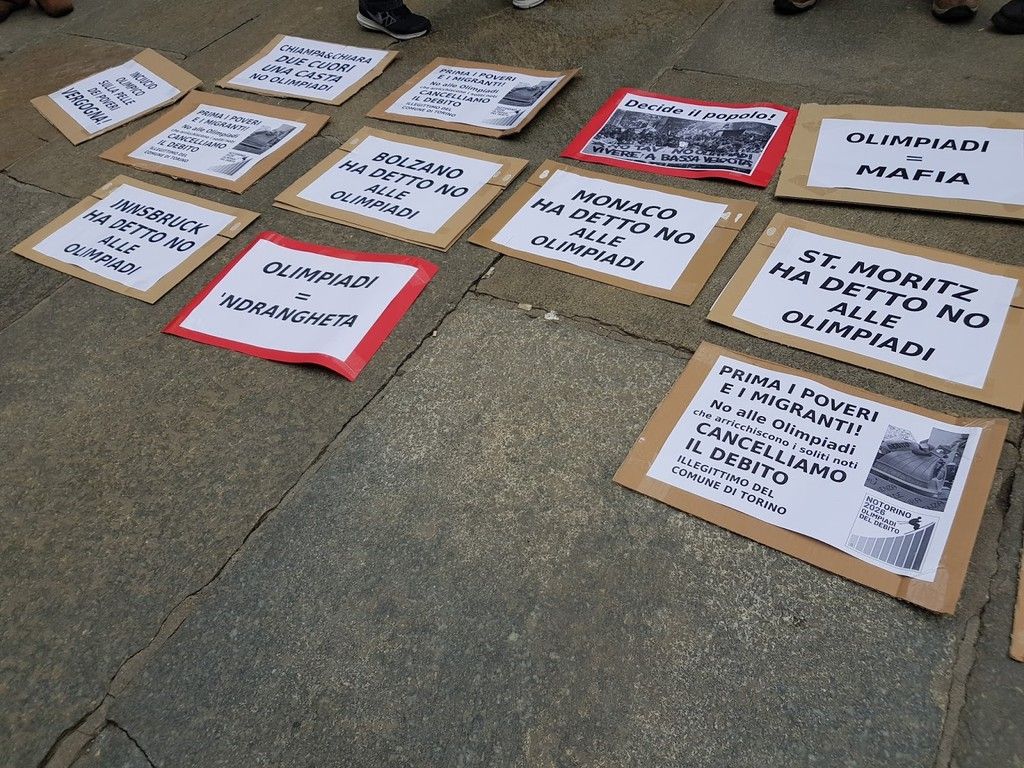 INCIUCIO
OLIMPICO
SULLA PELLE
DEI POVERI
VERGOGNA!
CHIAMPA&CHIARA
DUE CUORI
UNA CASTA
NO OLIMPIADI
PRIMA I POVERI
E I MIGRANTI!
No alle Olimpiadi
che arricchiscono i soliti noti
CANCELLIAMO
IL DEBITO
ILLEGITTIMO DEL
COMUNE DI TORINO
PRIMA I POVERI
E I MIGRANTI!
No alle Olimpiadi
che arricchiscono i soliti noti
CANCELLIAMO
IL DEBITO
ILLEGITTIMO DEL
COMUNE DI TORINO
Decide il popolo!
VIVERE A BASSA VELOCITÀ
OLIMPIADI
=
MAFIA
BOLZANO
HA DETTO NO
ALLE
OLIMPIADI
INNSBRUCK
HA DETTO NO
ALLE
OLIMPIADI
MONACO
HA DETTO NO
ALLE
OLIMPIADI
OLIMPIADI
=
'NDRANGHETA
ST. MORITZ
HA DETTO NO
ALLE
OLIMPIADI
PRIMA I POVERI
E I MIGRANTI!
No alle Olimpiadi
che arricchiscono i soliti noti
CANCELLIAMO
IL DEBITO
ILLEGITTIMO DEL
COMUNE DI TORINO
NOTORINO
2026
OLIMPIADI
DEL DEBITO